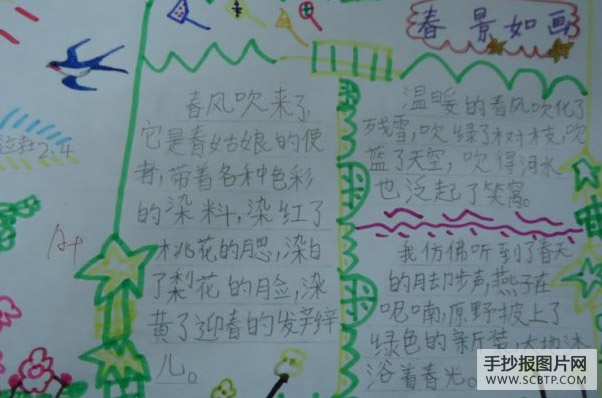 春景如画
春风吹来了,
它是春姑娘的使
者,带着各种色彩
的染料,染红了
桃花的腮,染白
了梨花的脸,染
黄了迎春的发辫
儿。
温暖的春风吹化了
残雪,吹绿了树枝,吹
蓝了天空,吹得河水
也泛起了笑窝。
我仿佛听到了春天
的脚步声,燕子在
呢喃,原野披上了
绿色的新装,大地沐
浴着春光。
2.4
A+
手抄报图片网
WWW.SCBTP.COM